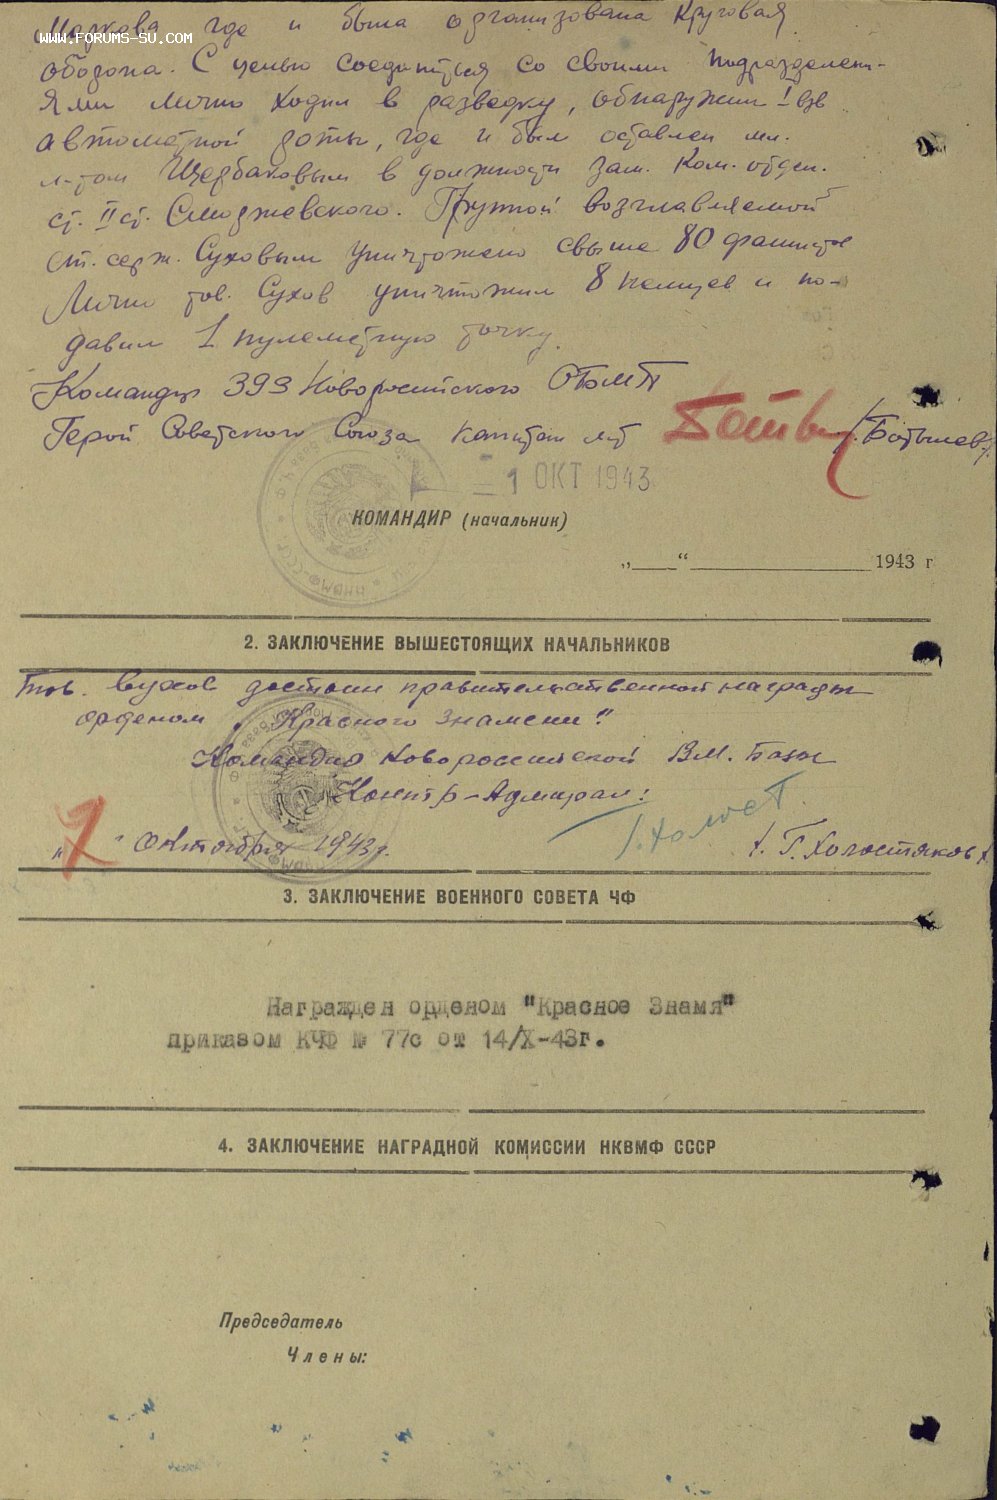 Маркова где и была организована круговая
WWW.FORUMS-SU.COM
оборона. С целью соединиться со своими подразделени-
ями лично ходил в разведку, обнаружил I взв
автоматной роты, где и был оставлен мл.
л-том Щербаковым в должности зам. ком. отдел.
ст. II ст. Сморжевского. Группой возглавляемой
ст. серж. Суховым уничтожено свыше 80 фашистов
Лично тов. Сухов уничтожил 8 немцев и по-
давил 1 пулеметную точку.
Командир 393 Новороссийского ОБОМП
Герой Советского Союза капитан л-т /Ботылев/.
1 ОКТ 1943
КОМАНДИР (начальник)
„____“ 1943 г
2. ЗАКЛЮЧЕНИЕ ВЫШЕСТОЯЩИХ НАЧАЛЬНИКОВ
Тов. Сухов достоин правительственной награды
орденом „Красного Знамени".
Командир Новороссийской ВМ. Базы
Контр-Адмирал:
„7" октября 1943 г. /. Г. Холостяков /.
3. ЗАКЛЮЧЕНИЕ ВОЕННОГО СОВЕТА ЧФ
Награжден орденом "Красное Знамя"
приказом КЧФ № 77с от 14/X-43г.
4. ЗАКЛЮЧЕНИЕ НАГРАДНОЙ КОМИССИИ НКВМФ СССР
Председатель
Члены: